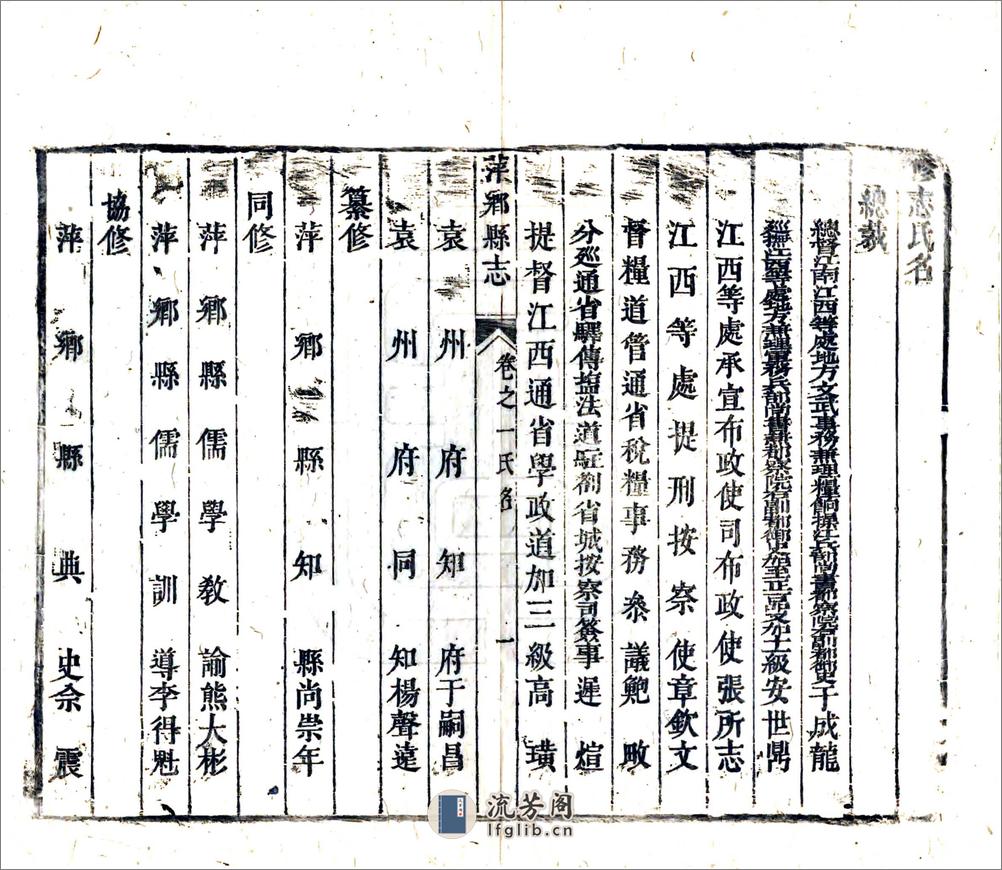 修志氏名
總裁
總督江南江西等處地方文武事務兼理糧餉操江兵部尚書都察院右副都御史于成龍
巡撫江西等處地方兼理軍務兵部尚書兼都察院右副都御史加至正品又加士級安世鼎
江西等處承宣布政使司布政使張所志
江西等處提刑按察使章欽文
督糧道管通省稅糧事務叅議鮑畋
分廵通省驛傳鹽法道駐劄省城按察司簽事遲煊
提督江西通省學政道加三級高璜
萍鄉縣志
卷之一氏名
一
袁州府知府于嗣昌
袁州府同知楊聲遠
纂修
萍鄉縣知縣尚崇年
同修
萍鄉縣儒學教諭熊大彬
萍鄉縣儒學訓導李得魁
協修
萍鄉縣典史佘震
流芳阁
lfglib.cn